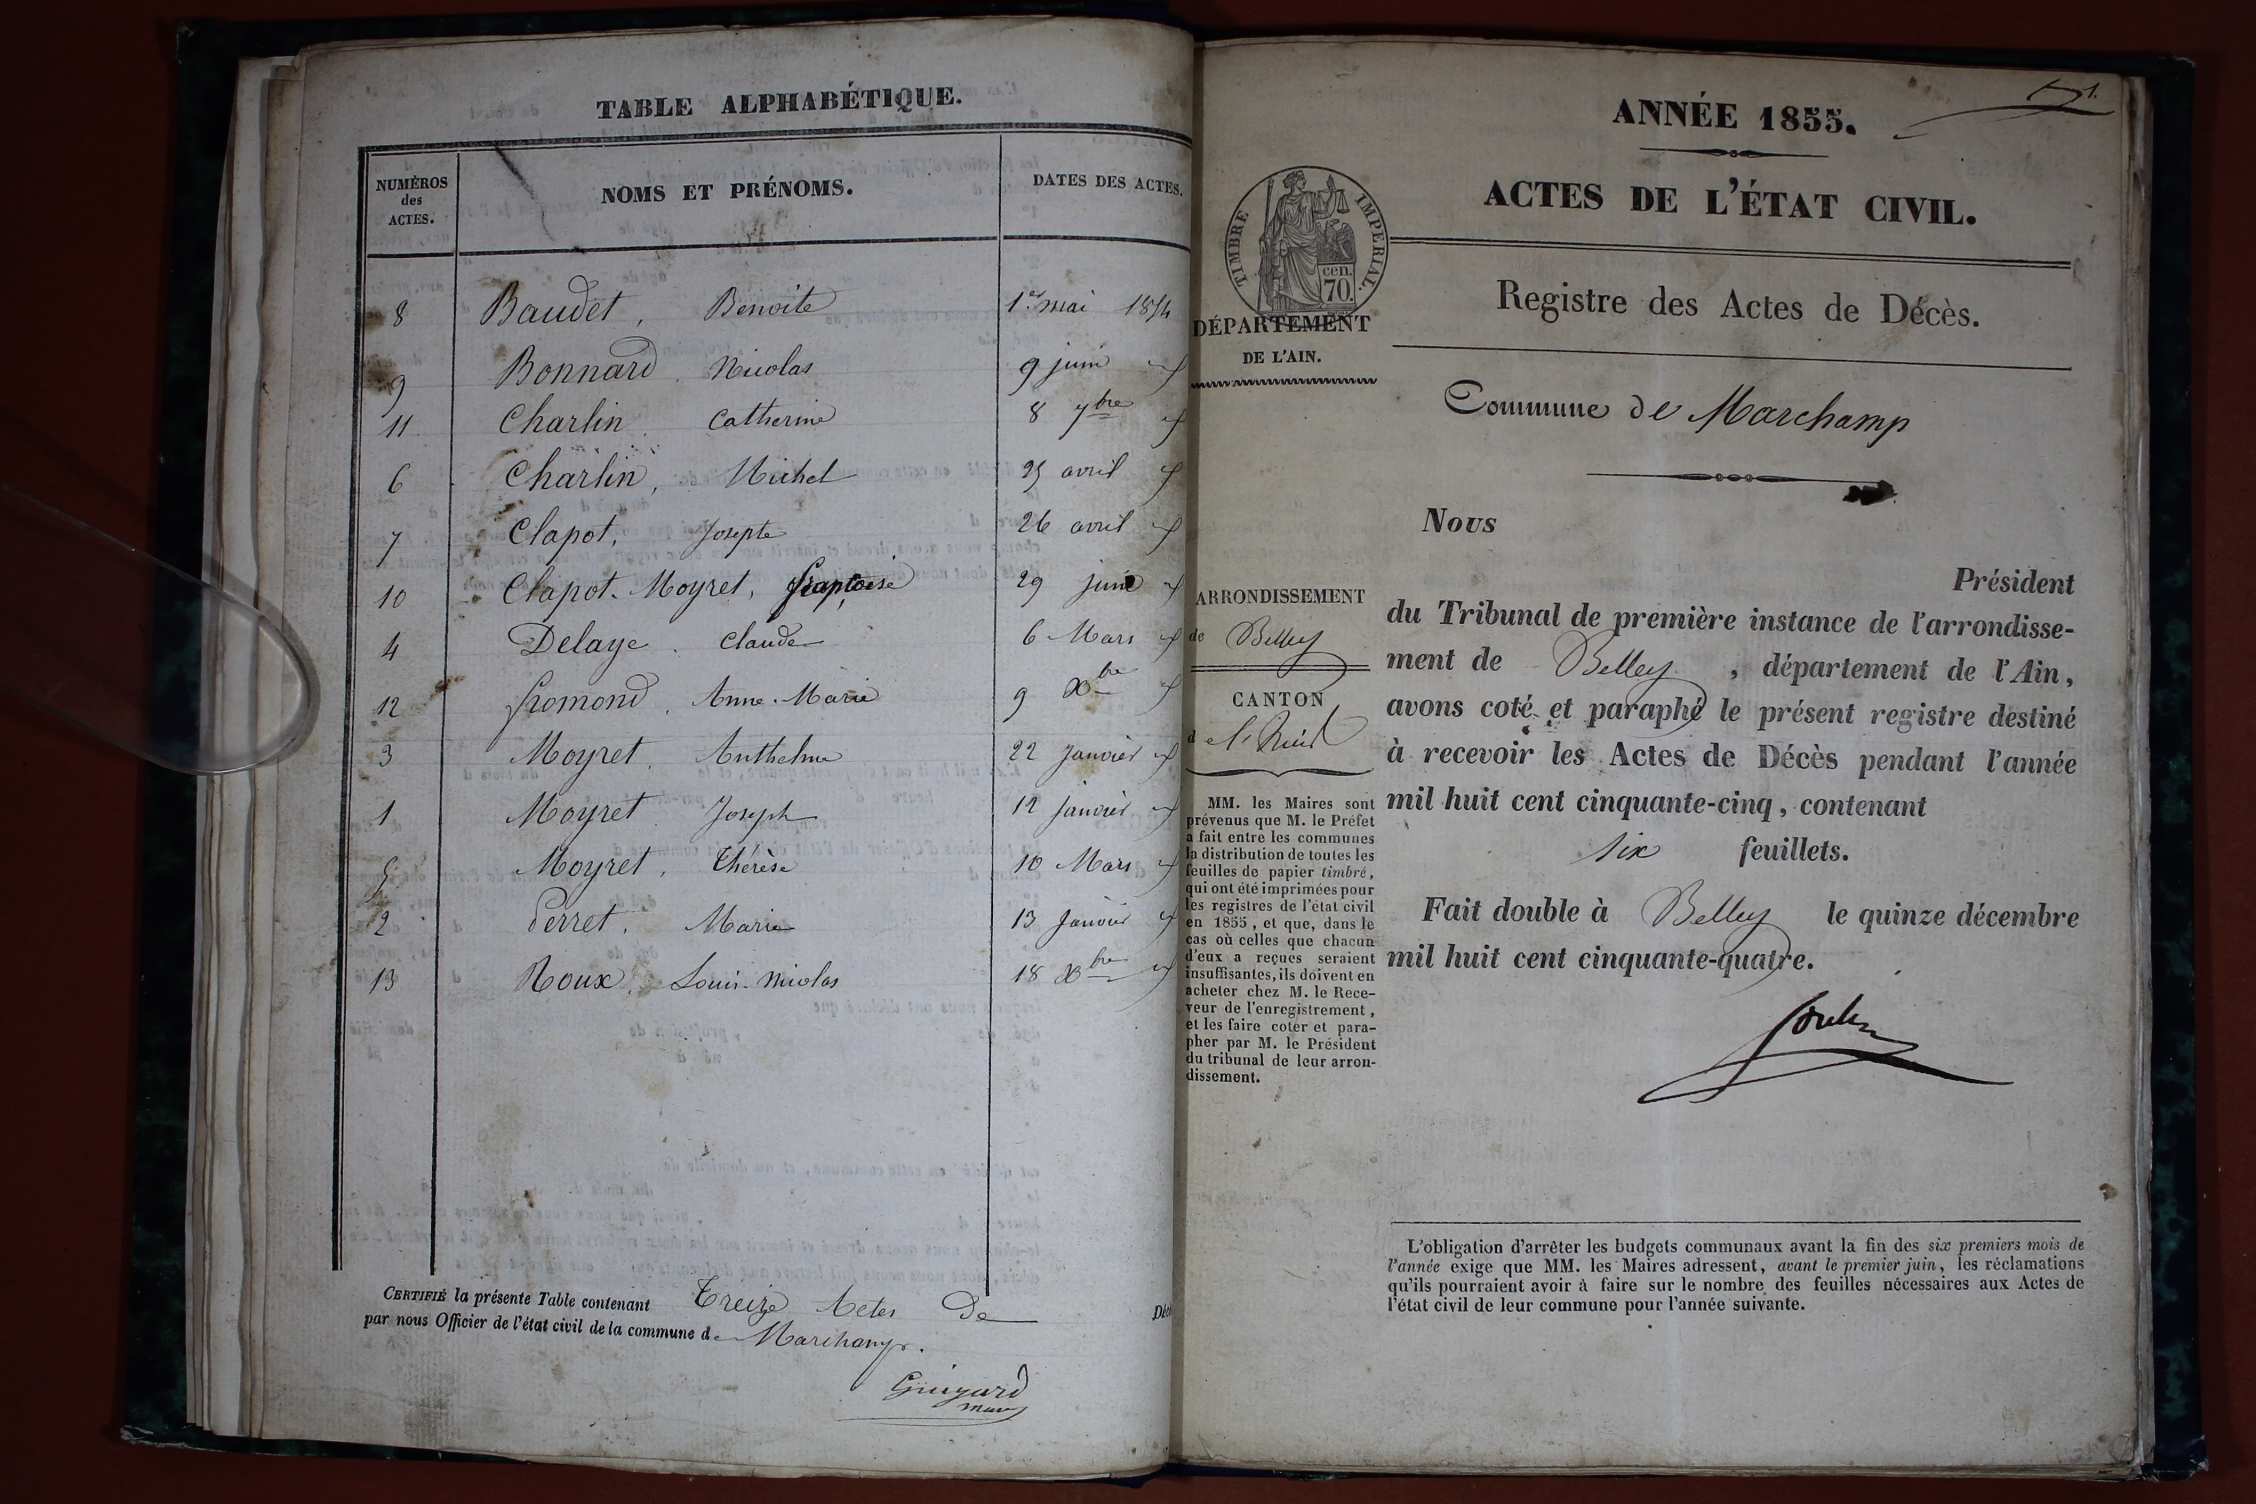 TABLE ALPHABÉTIQUE.
NUMÉROS des ACTES. NOMS ET PRÉNOMS. DATES DES ACTES.
8 Baudet, Benoite 1er mai 1854
9 Bonnard Nicolas 9 juin
11 Charlin Catherine 8 7bre
6 Charlin, Michel 25 avril
7 Clapot, Josepte 26 avril
10 Clapot-Moyret, françoise 29 juin
4 Delaye. Claude 6 Mars
12 fromond, Anne-Marie 9 Xbre
3 Moyret. Anthelme 22 Janvier
1 Moyret Joseph 12 janvier
5 Moyret, Thérèse 10 Mars
2 Perret, Marie 13 Janvier
13 Roux, Louis-Nicolas 18 Xbre
CERTIFIÉ la présente Table contenant Treize Actes de Déc
par nous Officier de l'état civil de la commune de Marchamp.
Guigard
maire
1
ANNÉE 1855.
ACTES DE L'ÉTAT CIVIL.
TIMBRE IMPÉRIAL.
cen.
70.
Registre des Actes de Décès.
DÉPARTEMENT
DE L'AIN.
Commune de Marchamp
ARRONDISSEMENT
de Belley
CANTON
d
MM. les Maires sont
prévenus que M. le Préfet
a fait entre les communes
la distribution de toutes les
feuilles de papier timbré,
qui ont été imprimées pour
les registres de l'état civil
en 1855, et que, dans le
cas où celles que chacun
d'eux a reçues seraient
insuffisantes, ils doivent en
acheter chez M. le Rece-
veur de l'enregistrement,
et les faire coter et para-
pher par M. le Président
du tribunal de leur arron-
dissement.
Nous
Président
du Tribunal de première instance de l'arrondisse-
ment de Belley, département de l'Ain,
avons coté et paraphé le présent registre destiné
à recevoir les Actes de Décès pendant l'année
mil huit cent cinquante-cinq, contenant
six feuillets.
Fait double à Belley le quinze décembre
mil huit cent cinquante-quatre.
L'obligation d'arrêter les budgets communaux avant la fin des six premiers mois de
l'année exige que MM. les Maires adressent, avant le premier juin, les réclamations
qu'ils pourraient avoir à faire sur le nombre des feuilles nécessaires aux Actes de
l'état civil de leur commune pour l'année suivante.